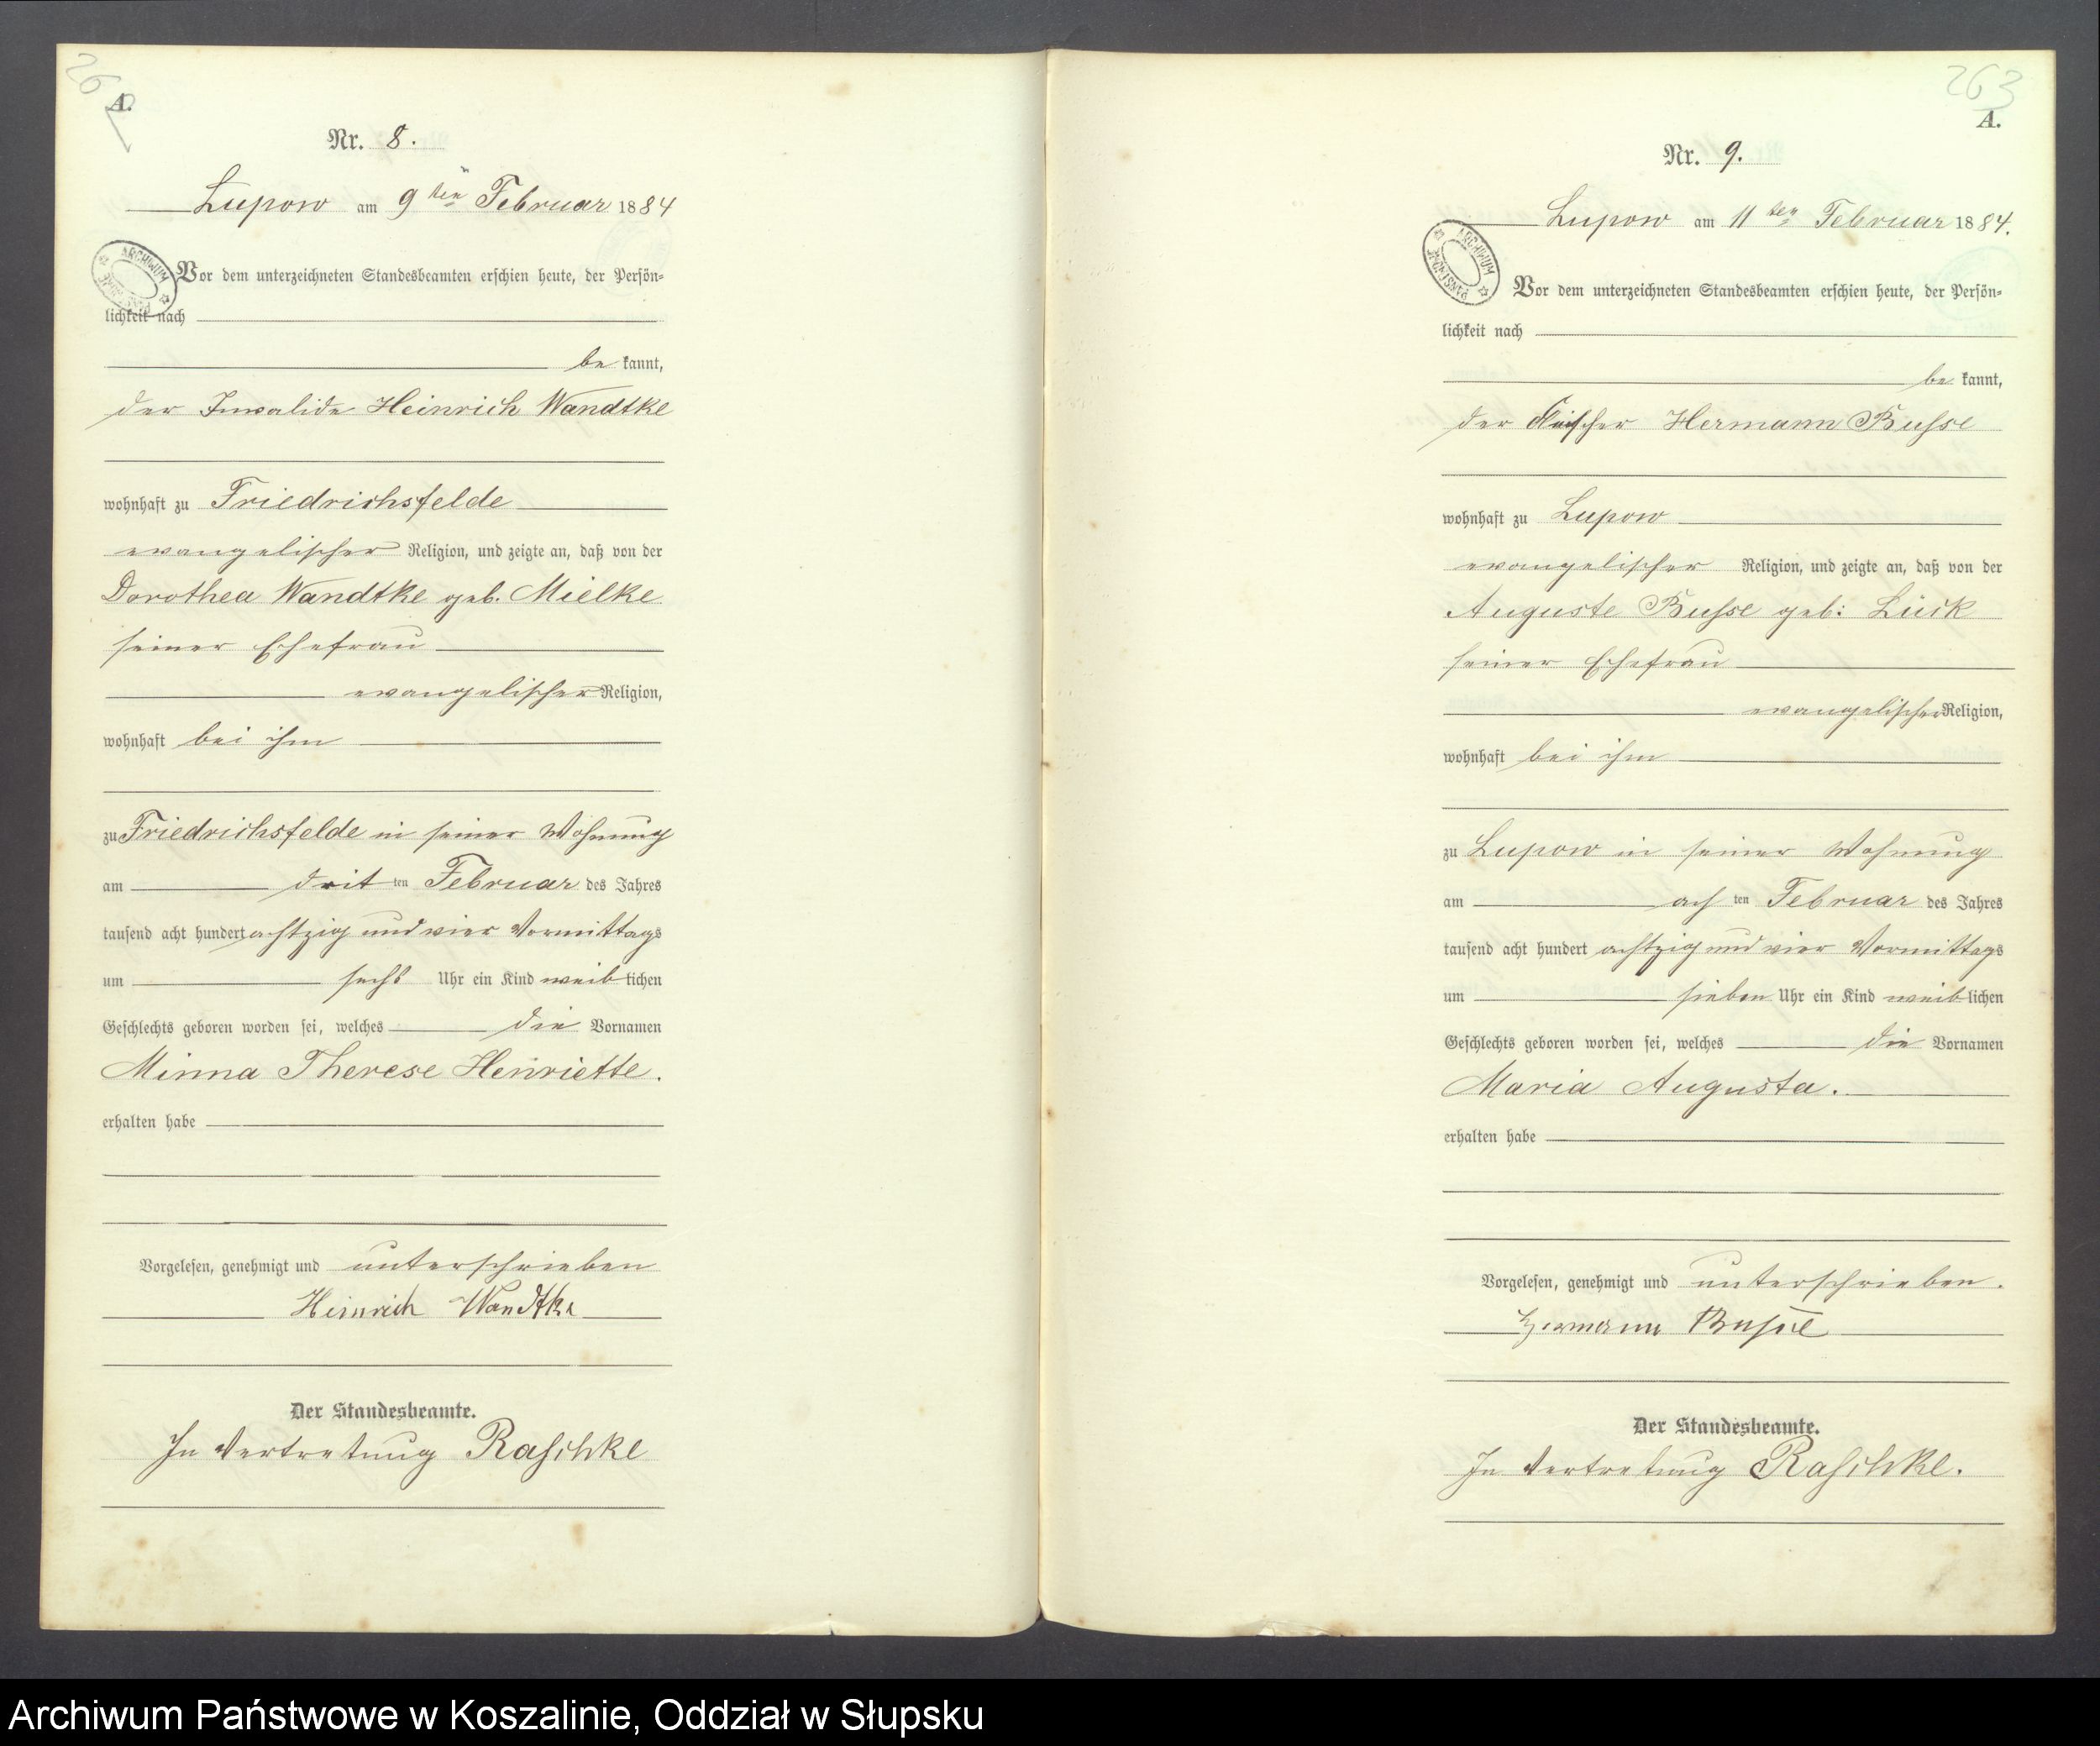 A.
Nr. 8.
Lupow am 9ten Februar 1884
ARCHIWUM
Vor dem unterzeichneten Standesbeamten erschien heute, der Persön-
lichkeit nach
be kannt,
der Invalide Heinrich Wandtke
wohnhaft zu Friedrichsfelde
evangelischer Religion, und zeigte an, daß von der
Dorothea Wandtke geb. Mielke
seiner Ehefrau
evangelischer Religion,
wohnhaft bei ihm
zu Friedrichsfelde in seiner Wohnung
am drit ten Februar des Jahres
tausend acht hundert achtzig und vier Vormittags
um sechs Uhr ein Kind weib lichen
Geschlechts geboren worden sei, welches die Vornamen
Minna Therese Henriette.
erhalten habe
Vorgelesen, genehmigt und unterschrieben
Heinrich Wandtke
Der Standesbeamte.
In Vertretung Raschke
263
A.
Nr. 9.
Lupow am 11ten Februar 1884.
ARCHIWUM PAŃSTWOWE
Vor dem unterzeichneten Standesbeamten erschien heute, der Persön-
lichkeit nach
be kannt,
der Hermann Busse
wohnhaft zu Lupow
evangelischer Religion, und zeigte an, daß von der
Auguste Busse geb: Lück
seiner Ehefrau
evangelischer Religion,
wohnhaft bei ihm
zu Lupow in seiner Wohnung
am ach ten Februar des Jahres
tausend acht hundert achtzig und vier Vormittags
um sieben Uhr ein Kind weib lichen
Geschlechts geboren worden sei, welches die Vornamen
Maria Augusta.
erhalten habe
Vorgelesen, genehmigt und unterschrieben.
Hermann Busse
Der Standesbeamte.
In Vertretung Raschke.
Archiwum Państwowe w Koszalinie, Oddział w Słupsku